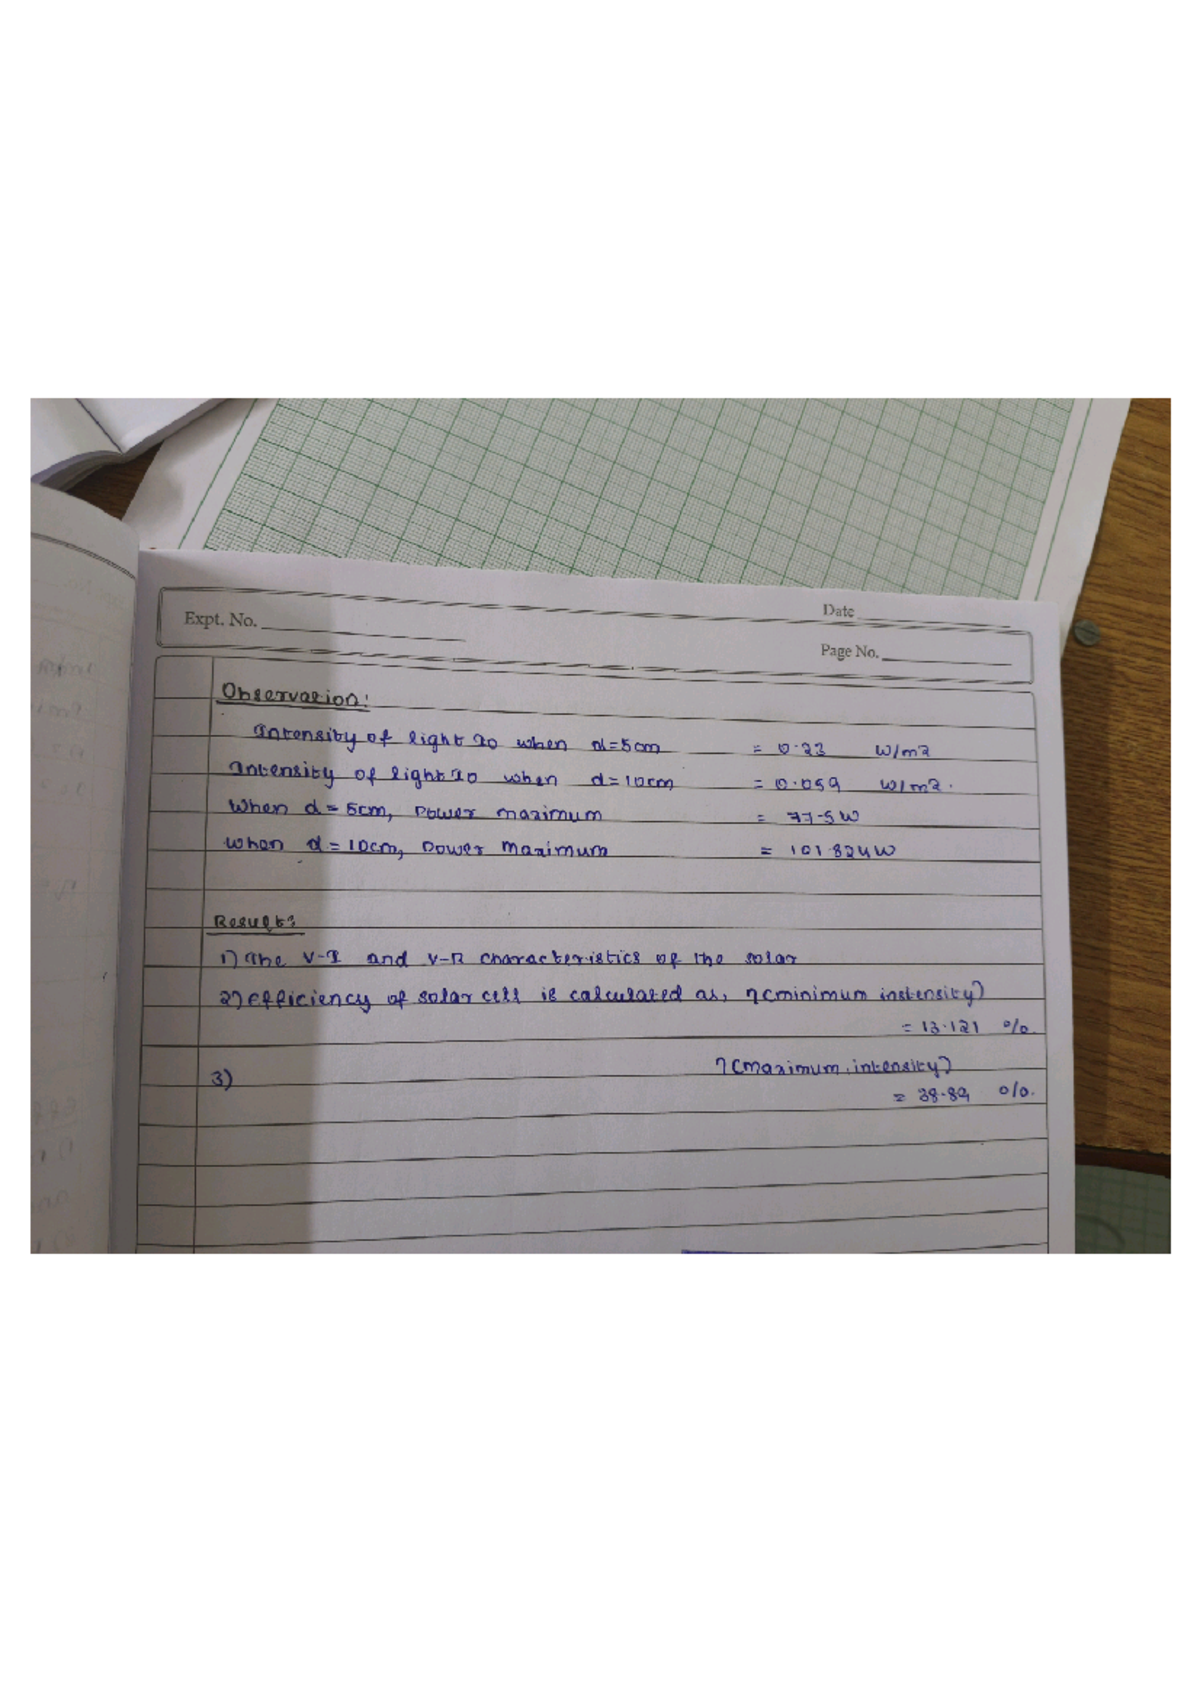 Expt. No.
Date
Page No.
Observation:
Intensity of light Io when d=5cm = 0.23 W/m2
Intensity of light Io when d=10cm = 0.059 W/m2.
When d=5cm, Power maximum = 77.5W
when d=10cm, Power Maximum = 101.824W
Result:
1) The V-I and V-R characteristics of the solar
2) Efficiency of solar cell is calculated as, η(minimum instensity)
= 13.121 %.
η(maximum intensity)
3)
= 38.89 %.